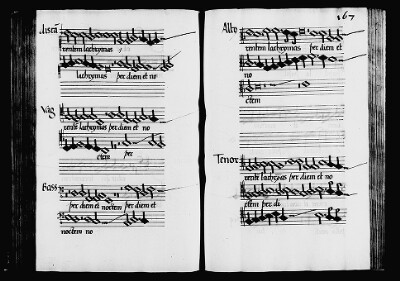 rentem lachrymas
lachrymas per diem et no
Vag
rente lachrymas per diem et no
ctem per
Bass
per diem et noctem per diem et
noctem no
167
Alto
rentem lachrymas per diem et
no
ctem
Tenor
rente lachrymas per diem et no
ctem per di